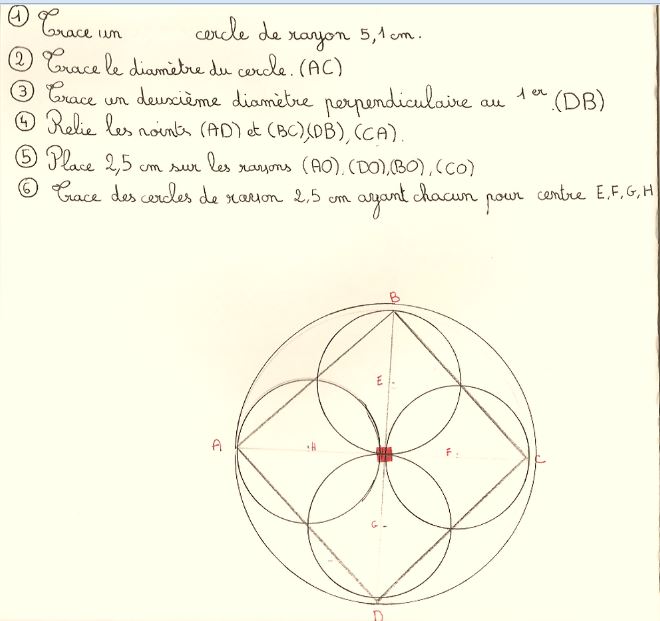 ① Trace un cercle de rayon 5,1 cm.
② Trace le diamètre du cercle. (AC)
③ Trace un deuxième diamètre perpendiculaire au 1er.(DB)
④ Relie les points (AD) et (BC),(DB),(CA).
⑤ Place 2,5 cm sur les rayons (AO).(DO),(BO),(CO)
⑥ Trace des cercles de rayon 2,5 cm ayant chacun pour centre E,F,G,H
B
E
A
H
F
C
G
D